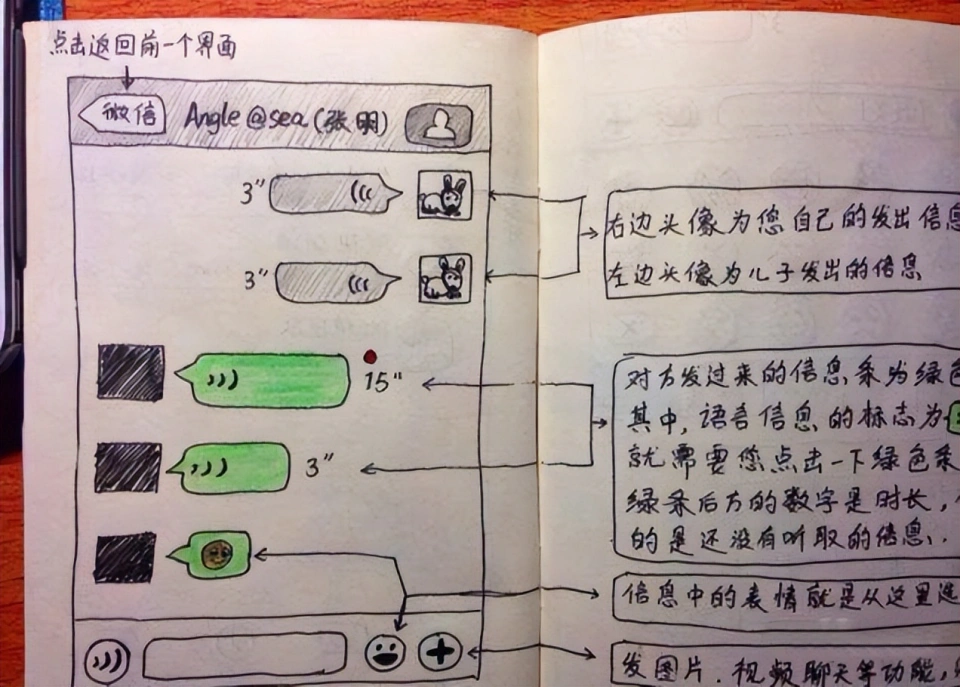 点击返回前一个界面
微信
Angle@sea(张明)
3"
3"
15"
3"
右边头像为您自己的发出信息
左边头像为儿子发出的信息
对方发过来的信息条为绿色
其中,语音信息的标志为
就需要您点击一下绿色条
绿条后方的数字是时长,
的是还没有听取的信息.
信息中的表情就是从这里选
发图片.视频聊天等功能,